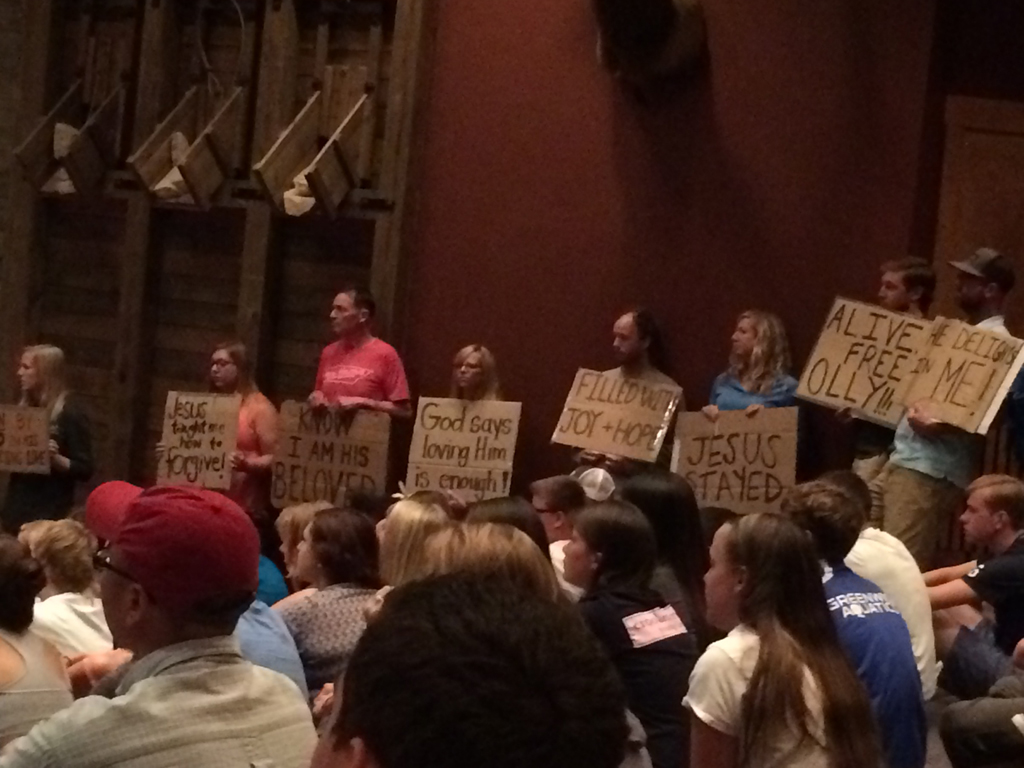 Jesus
taught me
how to
forgive!
KNOW
I AM HIS
BELOVED
God says
loving Him
is enough!
FILLED WITH
JOY + HOPE
JESUS
STAYED
ALIVE
FREE
OLLY!!!
HE DELIGHTS
IN
ME!
GREENW
AQUATIC